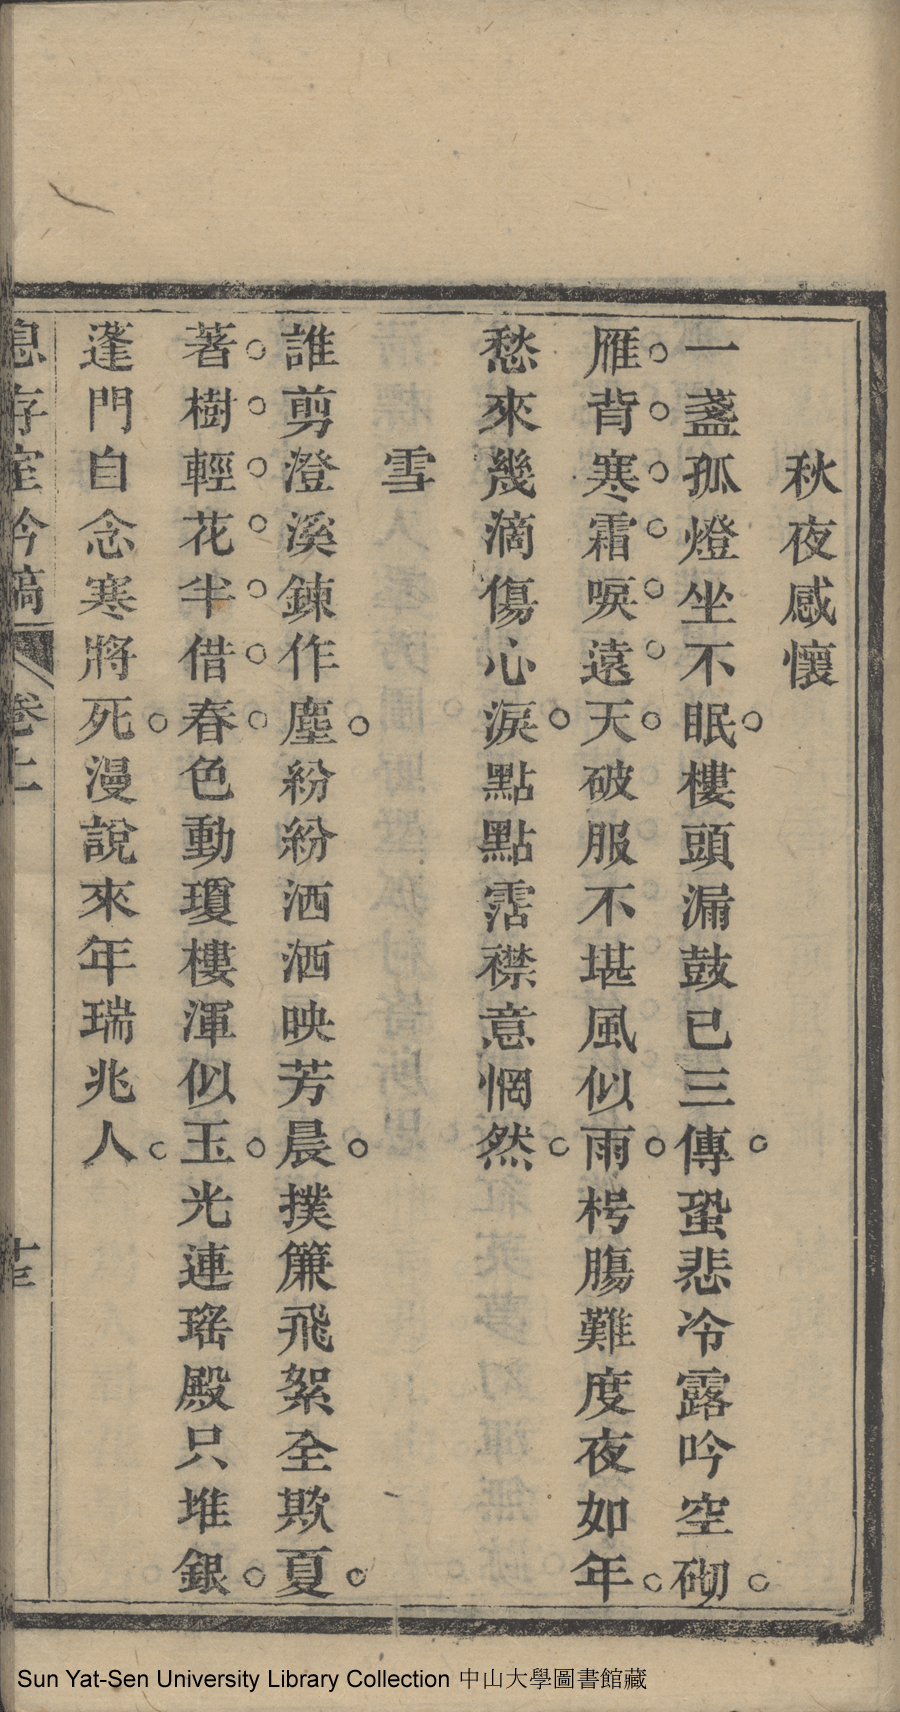 秋夜感懷
一盞孤燈坐不眠樓頭漏鼓已三傳蛩悲冷露吟空砌
雁背寒霜唳遠天破服不堪風似雨枵腸難度夜如年
愁來幾滴傷心淚點點霑襟意惘然
雪
誰剪澄溪鍊作塵紛紛洒洒映芳晨撲簾飛絮全欺夏
著樹輕花半借春色動瓊樓渾似玉光連瑤殿只堆銀
蓬門自念寒將死漫說來年瑞兆人
息存室吟稿 卷上
Sun Yat-Sen University Library Collection 中山大學圖書館藏